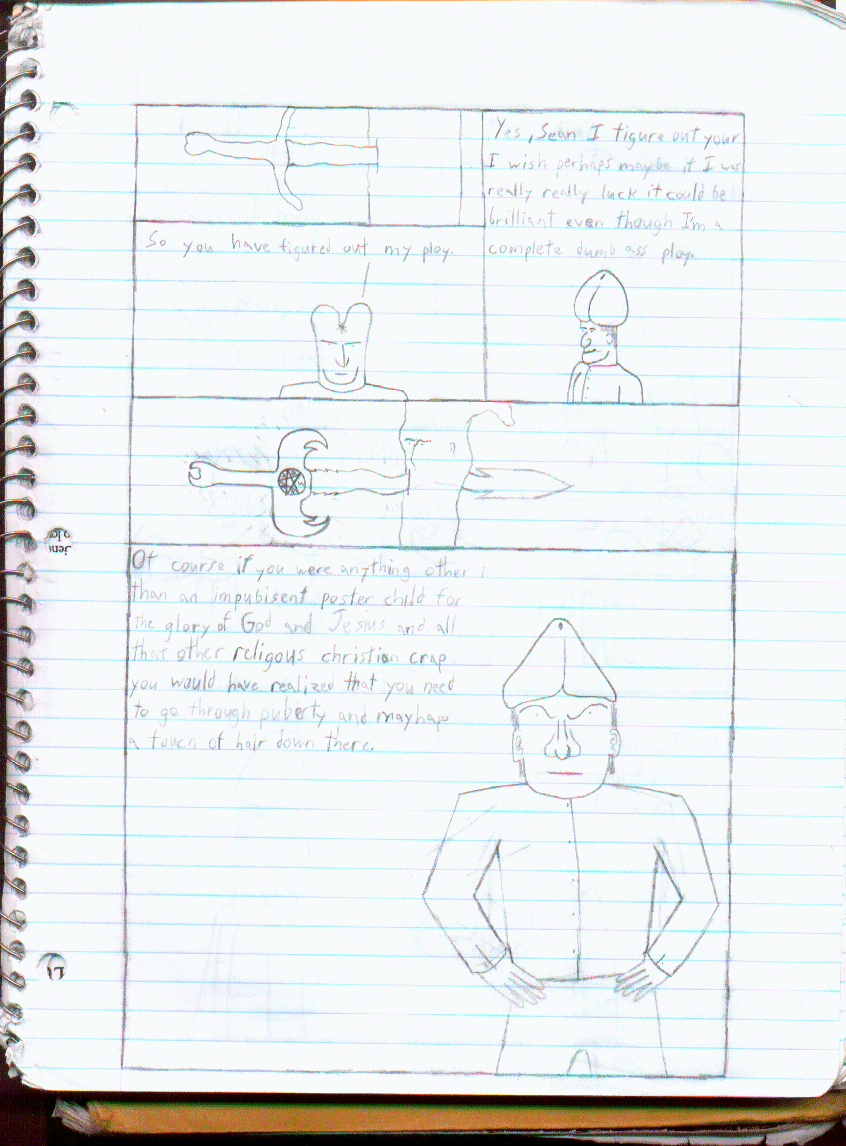 So you have figured out my ploy.
Yes, Sean I figure out your
I wish perhaps maybe if I was
really really luck it could be
brilliant even though I'm a
complete dumb ass ploy.
Of course if you were anything other
than an impubisent poster child for
the glory of God and Jesius and all
that other religous christian crap
you would have realized that you need
to go through puberty and mayhap
a touch of hair down there.